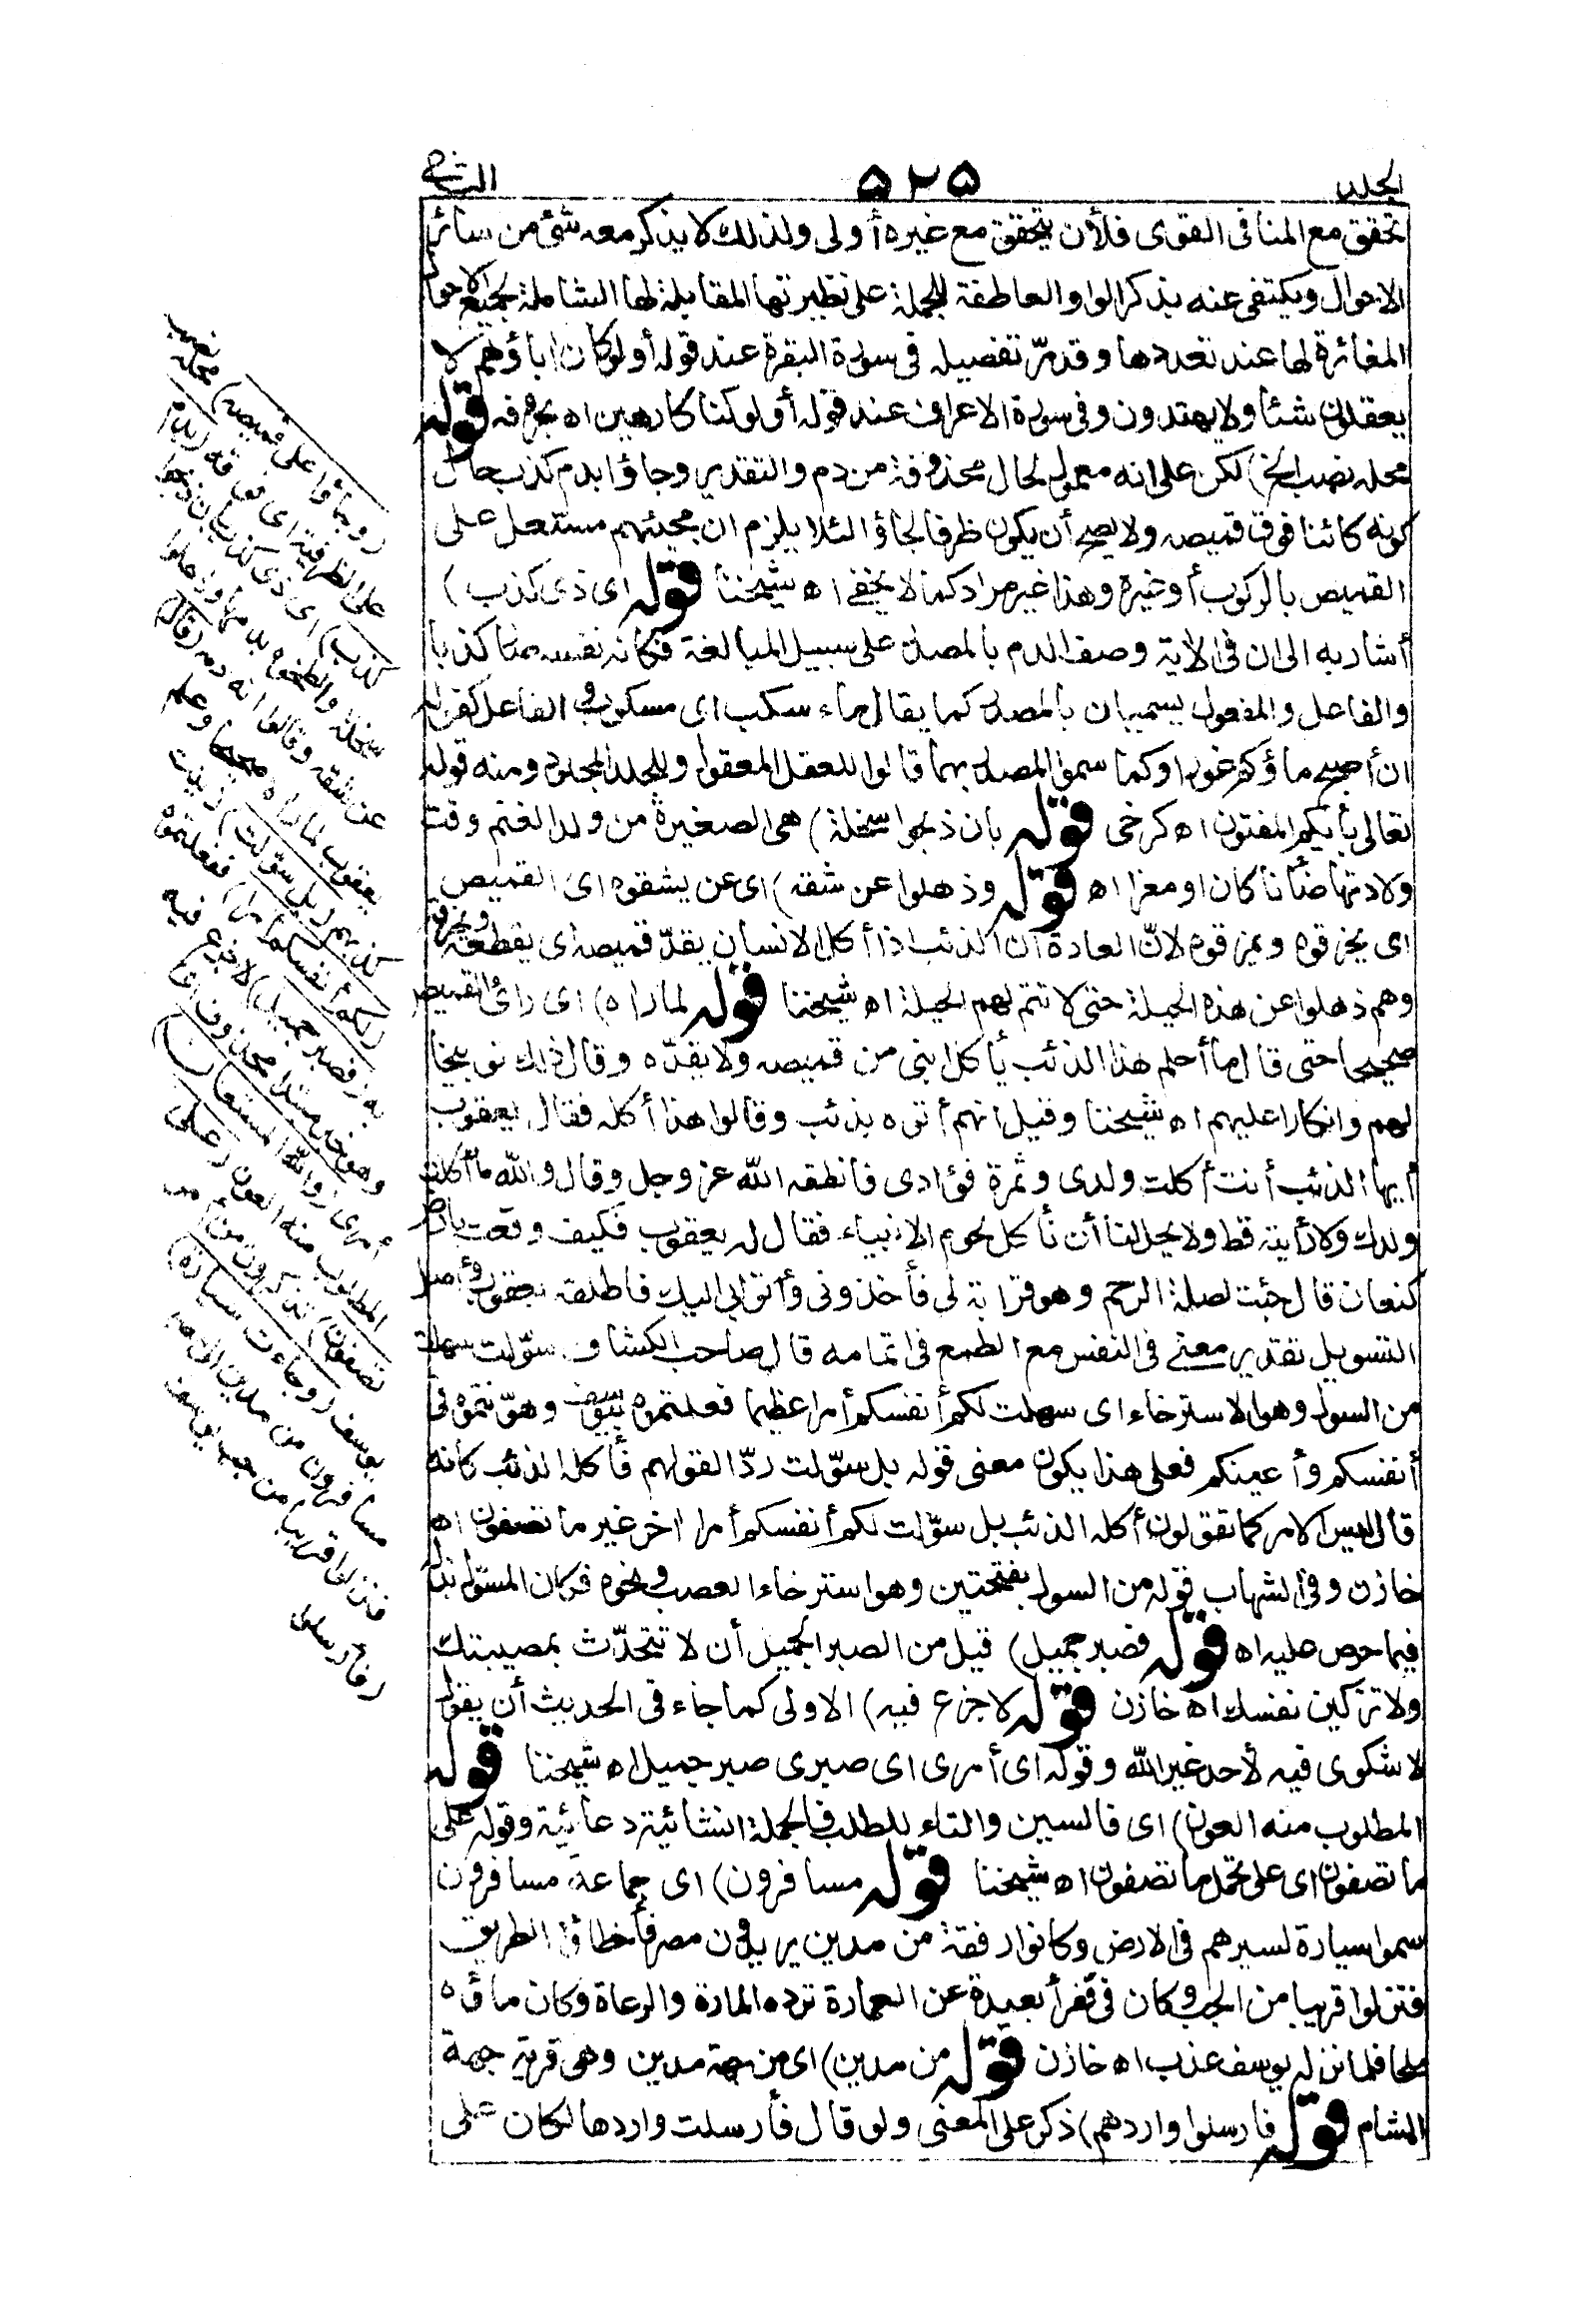 الجلد ۵۲۵ الثاني
تحقق مع المنافى القوى فلأن يتحقق مع غيره أولى ولذلك لا يذكر معه شئ من سائر
الاحوال ويكتفى عنه بذكر الواو العاطفة للجملة على نظيرتها المقابلة لها الشاملة لجميع الاحوال
المغائرة لها عند تعددها وقد مرّ تفصيله فى سورة البقرة عند قوله أولو كان اباؤهم لا
يعقلون شئا ولا يهتدون وفى سورة الاعراف عند قوله أولو كنا كارهين اه بحروفه قوله
محله نصب الخ) لكن على انه معمول لحال محذوفة من دم والتقدير وجاؤا بدم كذب حال
كونه كائنا فوق قميصه ولا يصح أن يكون ظرفا لجاؤا لئلا يلزم ان مجيئهم مستعل على
القميص بالركوب أو غيره وهذا غير مراد كما لا يخفى اه شيخنا قوله اى ذى كذب)
أشار به الى ان فى الاية وصف الدم بالمصدر على سبيل المبالغة فكانه نفسه صار كذبا
والفاعل والمفعول يسميان بالمصدر كما يقال ماء سكب اى مسكوب والفاعل كقوله
ان أصبح ماؤكم غورا وكما سموا المصدر بهما قالوا للعقل المعقول وللجلد المجلود ومنه قوله
تعالى بأيكم المفتون اه كرخى قوله بان ذبحوا سخلة) هى الصغيرة من ولد الغنم وقت
ولادتها ضأنا كان او معزا اه قوله وذهلوا عن شقه) اى عن يشقوه اى القميص
اى يخرقوه ويمزقوه لانّ العادة أن الذئب اذا أكل الانسان يقدّ قميصه اى يقطعه ويخرقه
وهم ذهلوا عن هذه الحيلة حتى لا تتم لهم الحيلة اه شيخنا قوله لما راه) اى راى القميص
صحيحا حتى قال ما أحلم هذا الذئب يأكل ابنى من قميصه ولا يقدّه وقال ذلك توبيخا
لهم وانكارا عليهم اه شيخنا وقيل انهم أتوه بذئب وقالوا هذا أكله فقال يعقوب
أيها الذئب أنت أكلت ولدى وثمرة فؤادى فانطقه الله عز وجل وقال والله ما أكلت
ولدك ولا رأيته قط ولا يحل لنا أن نأكل لحوم الانبياء فقال له يعقوب فكيف وقعت بارض
كنعان قال جئت لصلة الرحم وهو قرابة لى فأخذونى وأتوا بى اليك فاطلقه يعقوب وأصل
التسويل تقدير معنى فى النفس مع الطمع فى اتمامه قال صاحب الكشاف سوّلت سهلت
من السول وهو الاسترخاء اى سهلت لكم أنفسكم أمرا عظيما فعلتموه بيوسف وهوّنتموه فى
أنفسكم وأعينكم فعلى هذا يكون معنى قوله بل سوّلت ردّا لقولهم فأكله الذئب كانه
قال ليس الامر كما تقولون أكله الذئب بل سوّلت لكم أنفسكم أمرا اخر غير ما تصفون اه
خازن وفى الشهاب قوله من السول بفتحتين وهو استرخاء العصب ونحوه فكان المسوّل بذل
فيما حرص عليه اه قوله فصبر جميل) قيل من الصبر الجميل أن لا تتحدّث بمصيبتك
ولا تزكين نفسك اه خازن قوله لا جزع فيه) الاولى كما جاء فى الحديث أن يقول
لا شكوى فيه لأحد غير الله وقوله اى أمرى اى صبرى صبر جميل اه شيخنا قوله
المطلوب منه العون) اى فالسين والتاء للطلب فالجملة انشائية دعائية وقوله على
ما تصفون اى على تحمل ما تصفون اه شيخنا قوله مسافرون) اى جماعة مسافرون
سموا سيارة لسيرهم فى الارض وكانوا رفقة من مدين يريدون مصر فأخطاؤا الطريق
فنزلوا قريبا من الجب وكان فى قفرا بعيدة عن العمارة ترده المارة والرعاة وكان ماؤه
ملحا فلما نزله يوسف عذب اه خازن قوله من مدين) اى من جهة مدين وهى قرية جهة
الشام قوله فارسلوا واردهم) ذكر على المعنى ولو قال فأرسلت واردها لكان على
(وجاؤا على قميصه) محله نصب
على الظرفية اى فوقه (بدم
كذب) اى ذى كذب بان ذبحوا
سخلة ولطخوه بدمها وذهلوا
عن شقه وقالوا انه دمه (قال)
يعقوب لما راه صحيحا وعلم
كذبهم (بل سوّلت) زينت
(لكم أنفسكم أمرا) ففعلتموه
به (فصبر جميل) لا جزع فيه
وهو خبر مبتدا محذوف اى
أمرى (والله المستعان)
المطلوب منه العون (على
تصفون) تذكرون من أمر
يوسف (وجاءت سيارة)
مسافرون من مدين الى مصر
فنزلوا قريبا من جب يوسف
(فارسلوا